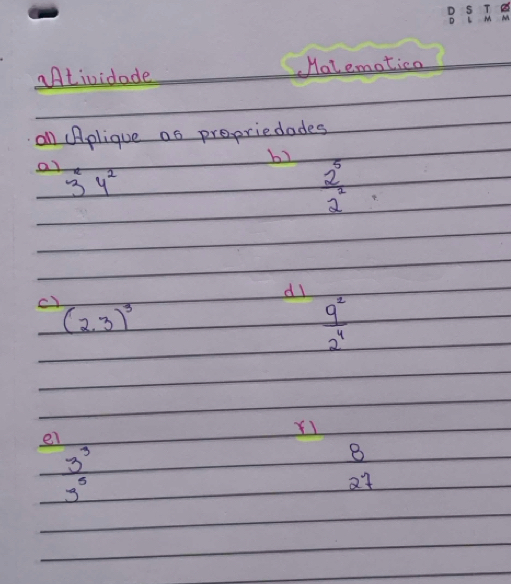 D S T Q
D L M M
Atividade Matematica
01) Aplique as propriedades
a) 3² 4² b) 2⁵
2²
c) (2.3)³ d) 9²
2⁴
e) 3³ f) 8
3⁵ 27